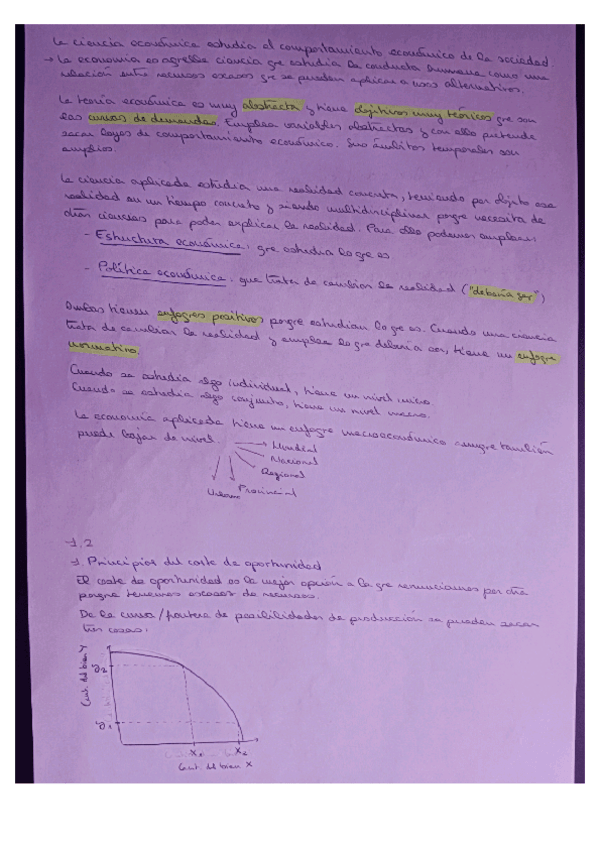 La ciencia económica estudia el comportamiento económico de la sociedad
→ La economía es aquella ciencia que estudia la conducta humana como una
relación entre recursos escasos que se pueden aplicar a usos alternativos.
La teoría económica es muy abstracta y tiene objetivos muy teóricos que son
las curvas de demandas. Emplea variables abstractas y con ello pretende
sacar leyes de comportamiento económico. Sus ámbitos temporales son
amplios.
La ciencia aplicada estudia una realidad concreta, teniendo por objeto esa
realidad en un tiempo concreto y siendo multidisciplinar porque necesita de
otras ciencias para poder explicar la realidad. Para ello podemos emplear:
- Estructura económica: que estudia lo que es
- Política económica: que trata de cambiar la realidad ("debería ser")
Ambas tienen enfoques positivos porque estudian lo que es. Cuando una ciencia
trata de cambiar la realidad y emplea lo que debería ser, tiene un enfoque
normativo.
Cuando se estudia algo individual, tiene un nivel micro.
Cuando se estudia algo conjunto, tiene un nivel macro.
La economía aplicada tiene un enfoque macroeconómico aunque también
puede bajar de nivel.
Mundial
Nacional
Regional
Provincial
1.2
1. Principios del coste de oportunidad
El coste de oportunidad es la mejor opción a la que renunciamos por otra
porque tenemos escasez de recursos.
De la curva/frontera de posibilidades de producción se pueden sacar
tres cosas:
Cant. del bien Y
y2
y1
X1
X2
Cant. del bien X